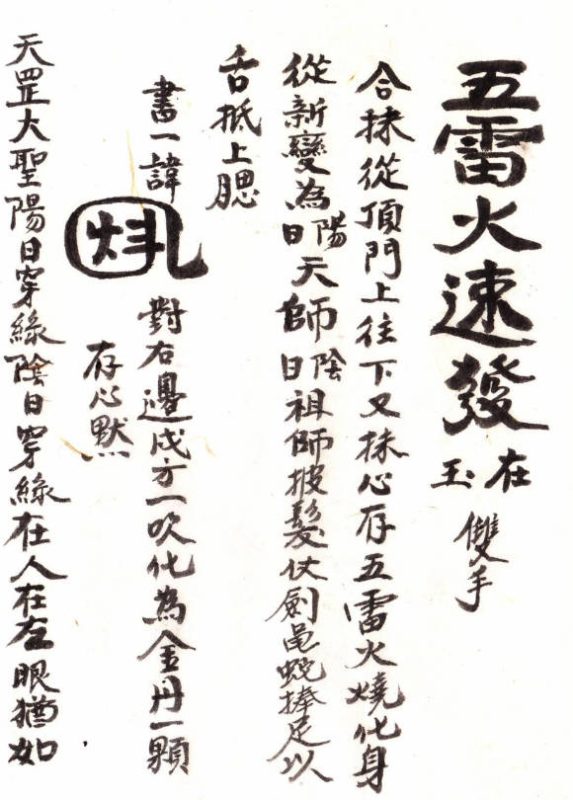 五雷火速發 在玉 雙手
合抹從頂門上往下又抹心存五雷火燒化身
從新變為陽日天師陰日祖師披髮仗劍黽蛇捧足以
舌抵上腮
書一諱 對右邊戌方一吹化為金丹一顆
存心默
天罡大聖陽日穿緣陰日穿緣在人在左眼猶如